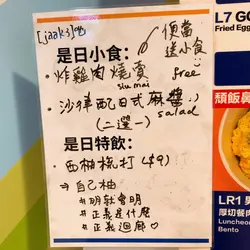 [jaaksi吧
便當
送小食
是日小食：
free
・炸雞肉燒賣
siu mai
・沙律配日式麻醬
salad
(二選一)
是日特飲：
・西柚梳打($9)
⇒自己柚
#明就會明
#正義是什麼
#正義迴廊♡
L7 GO
Fried Eg
頑飯
LR1
厚切餐肉
Luncheon
Bento